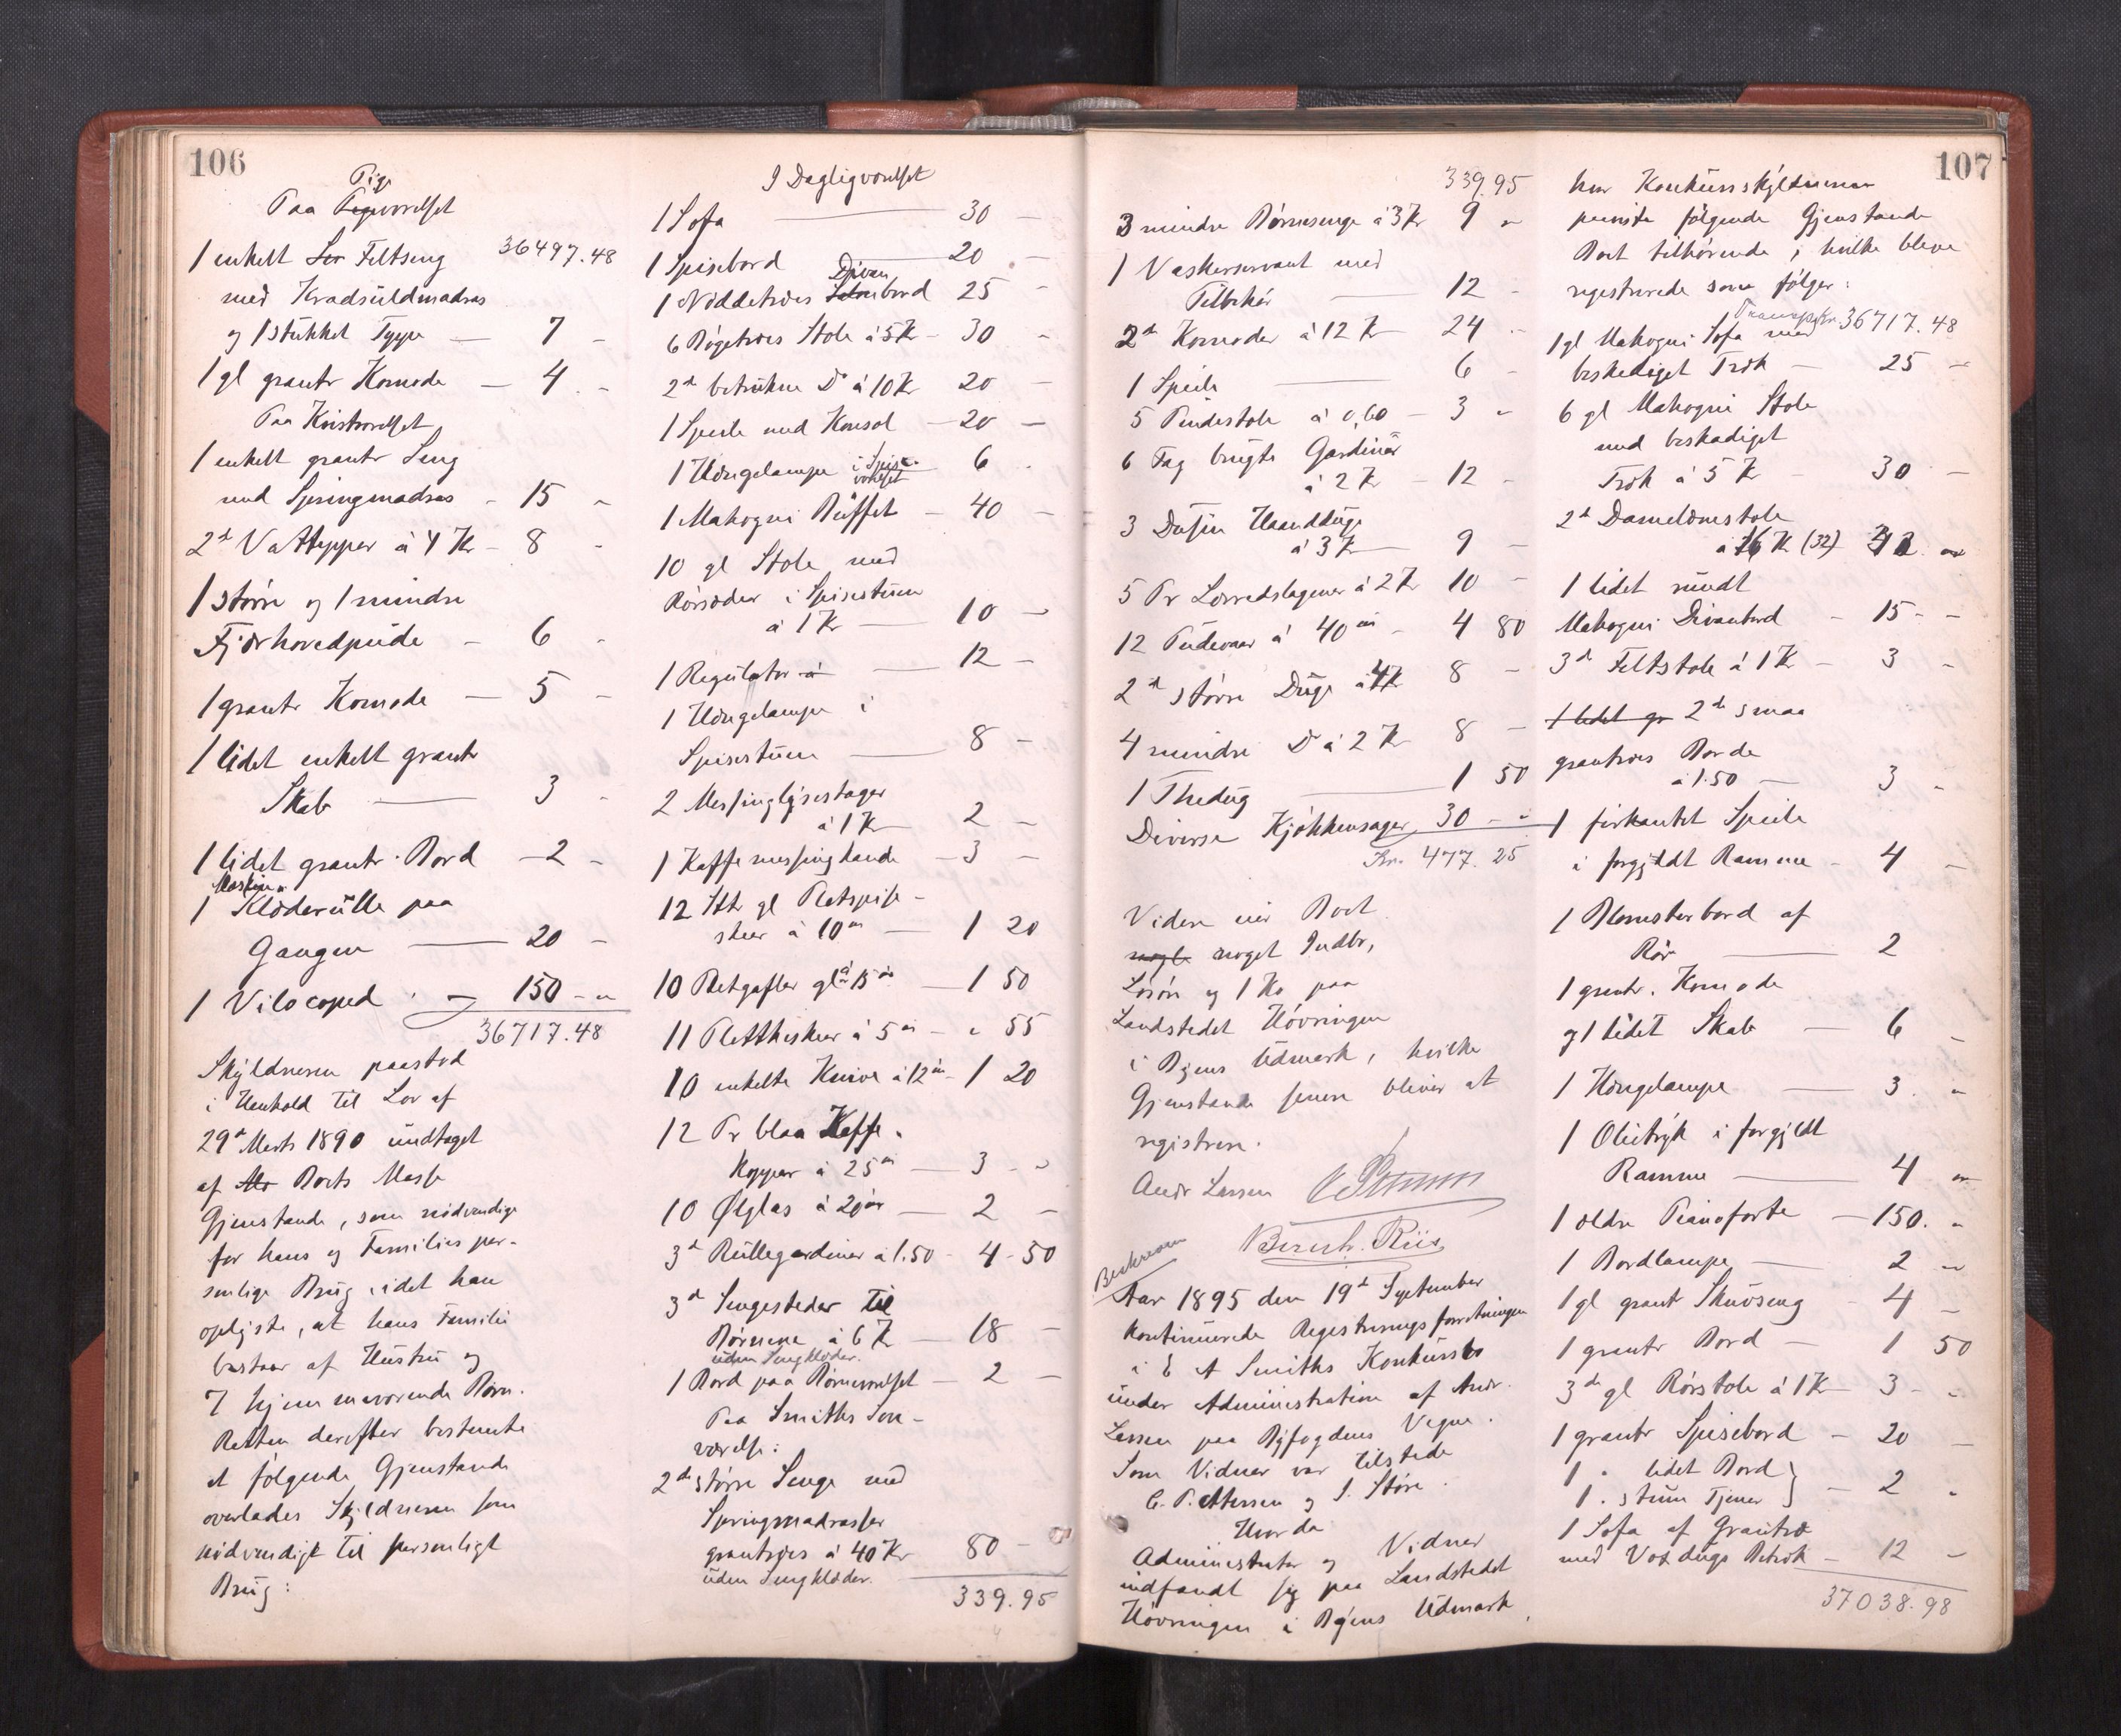 106
Pige
Paa Pigeværelset
1 enkelt Feltseng 36497.48
med Kradsuldmadras
og 1 stukket Teppe — 7 -
1 gl grantr Komode — 4 -
Paa Kvistværelset
1 enkelt grantr Seng
med Springmadras - 15 -
2de Vattepper à 4 Kr - 8 -
1 større og 1 mindre
Fjærhovedpude - 6 -
1 grantr Komode — 5 -
1 lidet enkelt grantr
Skab — 3 -
1 lidet grantr. Bord - 2 -
Maskin-
1 Klæderulle paa
Gangen — 20 -
1 Vilocoped — 150 - -
36717.48
Skyldneren paastod
i Henhold til Lov af
29de Marts 1890 undtaget
af Boets Masse
Gjenstande, som nødvendige
for hans og Families per-
sonlige Brug, idet han
oplyste, at hans Familie
bestaar af Hustru og
7 hjemmeværende Børn.
Retten derefter bestemte
at følgende Gjenstande
overlades Skyldneren som
nødvendigt til personligt
Brug:
I Dagligværelset
1 Sofa — 30 -
1 Spisebord — 20 -
Divan
1 Nøddetræes Salonbord 25 -
6 Bøgetræes Stole à 5 Kr - 30 -
2de betrukne Do à 10 Kr 20 -
1 Speile med Konsol - 20 -
1 Hængelampe i Spise- 6 -
værelset
1 Mahogni Buffet - 40 -
10 gl Stole med
Rørsæder i Spisestuen
à 1 Kr — 10 -
1 Regulator à — 12 -
1 Hængelampe i
Spisestuen — 8 -
2 Messinglysestager
à 1 Kr — 2 -
1 Kaffemessingkande - 3 -
12 Stk gl Pletspise-
skeer à 10 ør — 1 20
10 Pletgafler gl à 15 ør — 1 50
11 Pletttheskeer à 5 ør - " 55
10 enkelte Knive à 12 ør - 1 20
12 Pr blaa Kaffe-
kopper à 25 ør — 3 - -
10 Ølglas à 20 ør — 2 -
3de Rullegardiner à 1.50 - 4 - 50
3de Sengesteder til
Børnene à 6 Kr — 18 -
uden Sengklæder.
1 Bord paa Børneværelset — 2 -
Paa Smiths Sov-
værelse:
2de større Senge med
Springmadrasser
grantræes à 40 Kr 80 -
uden Sengklæder.
339.95
107
339.95
3 mindre Børnesenge à 3 Kr 9 -
1 Vaskeservant med
Tilbehør — 12 -
2de Komoder à 12 Kr - 24 -
1 Speile — 6 -
5 Pindestole à 0,60 - 3 -
6 Fag brugte Gardiner
à 2 Kr - 12 -
3 Dusin Haandduge
à 3 Kr — 9 -
5 Pr Lærredslagener à 2 Kr 10 -
12 Pudevaar à 40 ør - 4 80
2de større Duge à 4 Kr 8 -
4 mindre Do à 2 Kr 8 -
1 Thedug — 1 50
Diverse Kjøkkensager 30 - -
Kr. 477.25
Videre eier Boet
nogle noget Indbo,
Løsøre og 1 Ko paa
Landstedet Høvringen
i Byens Udmark, hvilke
Gjenstande senere bliver at
registrere.
Andr Lassen
Bernh. Riis
Beskreven
Aar 1895 den 19de September
kontinuerede Registreringsforretningen
i E A Smiths Konkursbo
under Administration af Andr.
Lassen paa Byfogdens Vegne.
Som Vidner var tilstede
C. Pettersen og S. Støre.
Hvorda
Administrator og Vidner
indfandt sig paa Landstedet
Høvringen i Byens Udmark,
hvor Konkursskyldneren
paaviste følgende Gjenstande
Boet tilhørende, hvilke bleve
registrerede som følger:
Transport 36717.48
1 gl Mahogni Sofa med
beskadiget Træk - 25 -
6 gl Mahogni Stole
med beskadiget
Træk à 5 Kr - 30 -
2de Damelænestole
à 16 Kr (32) 32 -
1 lidet rundt
Mahogni Divanbord - 15 - -
3de Feltstole à 1 Kr - 3 -
1 lidet gr 2de smaa
grantræes Borde
à 1.50 — 3 -
1 firkantet Speile
i forgyldt Ramme - 4 -
1 Blomsterbord af
Rør — 2
1 grantr. Komode
og 1 lidet Skab — 6 -
1 Hængelampe — 3 -
1 Olietryk i forgyldt
Ramme — 4 -
1 ældre Pianoforte — 150. -
1 Bordlampe — 2 -
1 gl grantr Skuvseng - 4 -
1 grantr Bord — 1 50
3de gl Rørstole à 1 Kr - 3 - -
1 grantr Spisebord - 20 -
1 " lidet Bord }
1 " stum Tjener } - 2 -
1 Sofa af Grantræ
med Voxdugs Betræk - 12 -
37038.98